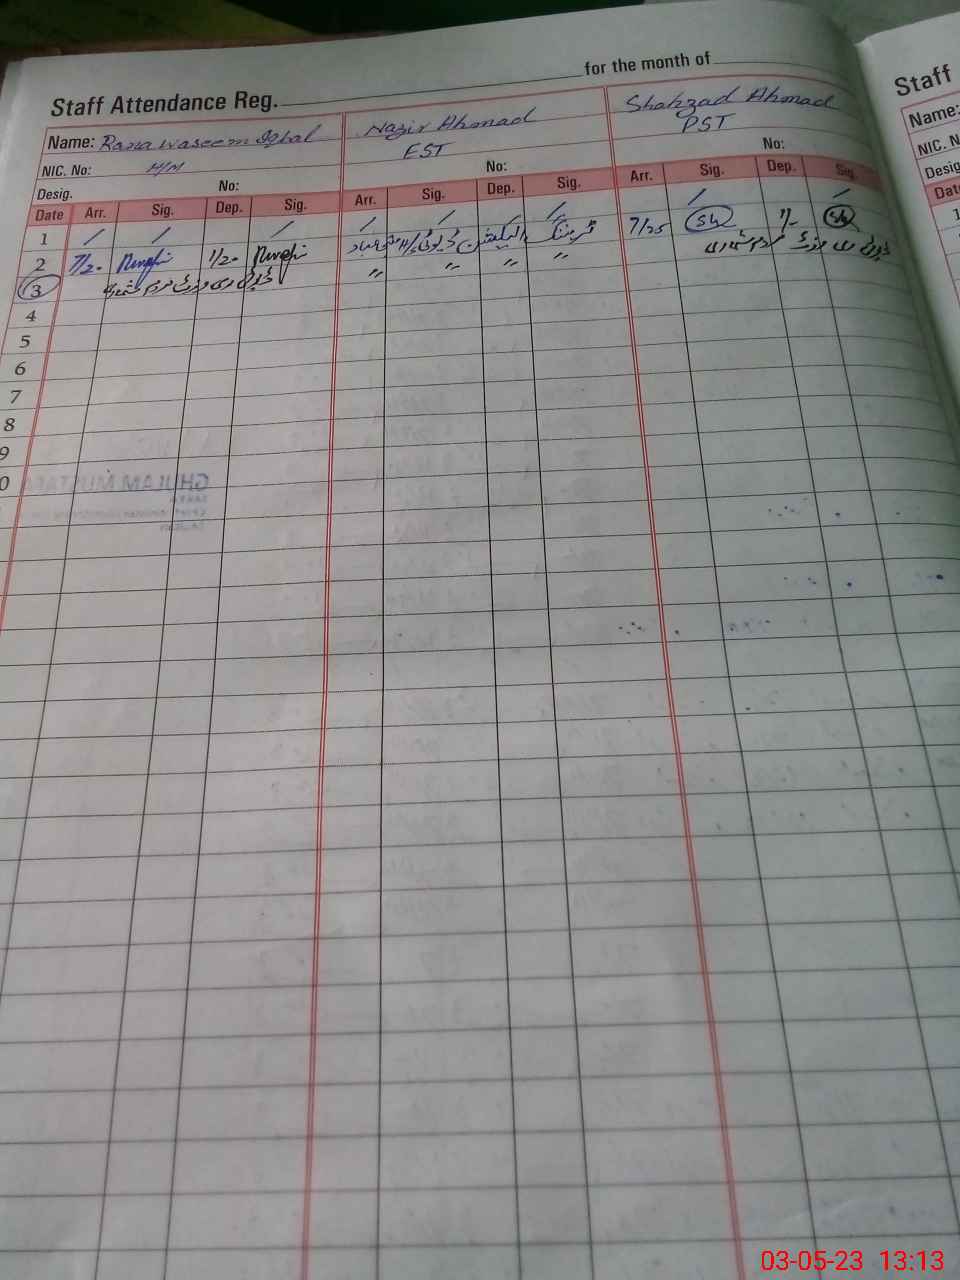 Staff Attendance Reg. for the month of
Staff
Name: Rana Waseem Iqbal
Nazir Ahmad
Shahzad Ahmad
Name:
NIC. No: H/M
EST
PST
NIC. N
Desig. No:
No:
No:
Desig
Date Arr. Sig. Dep. Sig. Arr. Sig. Dep. Sig. Arr. Sig. Dep. Sig.
Date
1 / / / / / / / / /
2 7/20 1/20 الیکشن ٹریننگ 7/25 Sh 1/- Sh
3 ڈیوٹی مردم شماری " " " " ڈیوٹی مردم شماری
4
5
6
7
8
9
0
GHULAM MUSTAFA
03-05-23 13:13